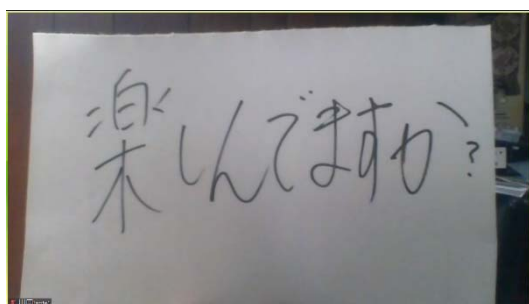 楽しんでますか?